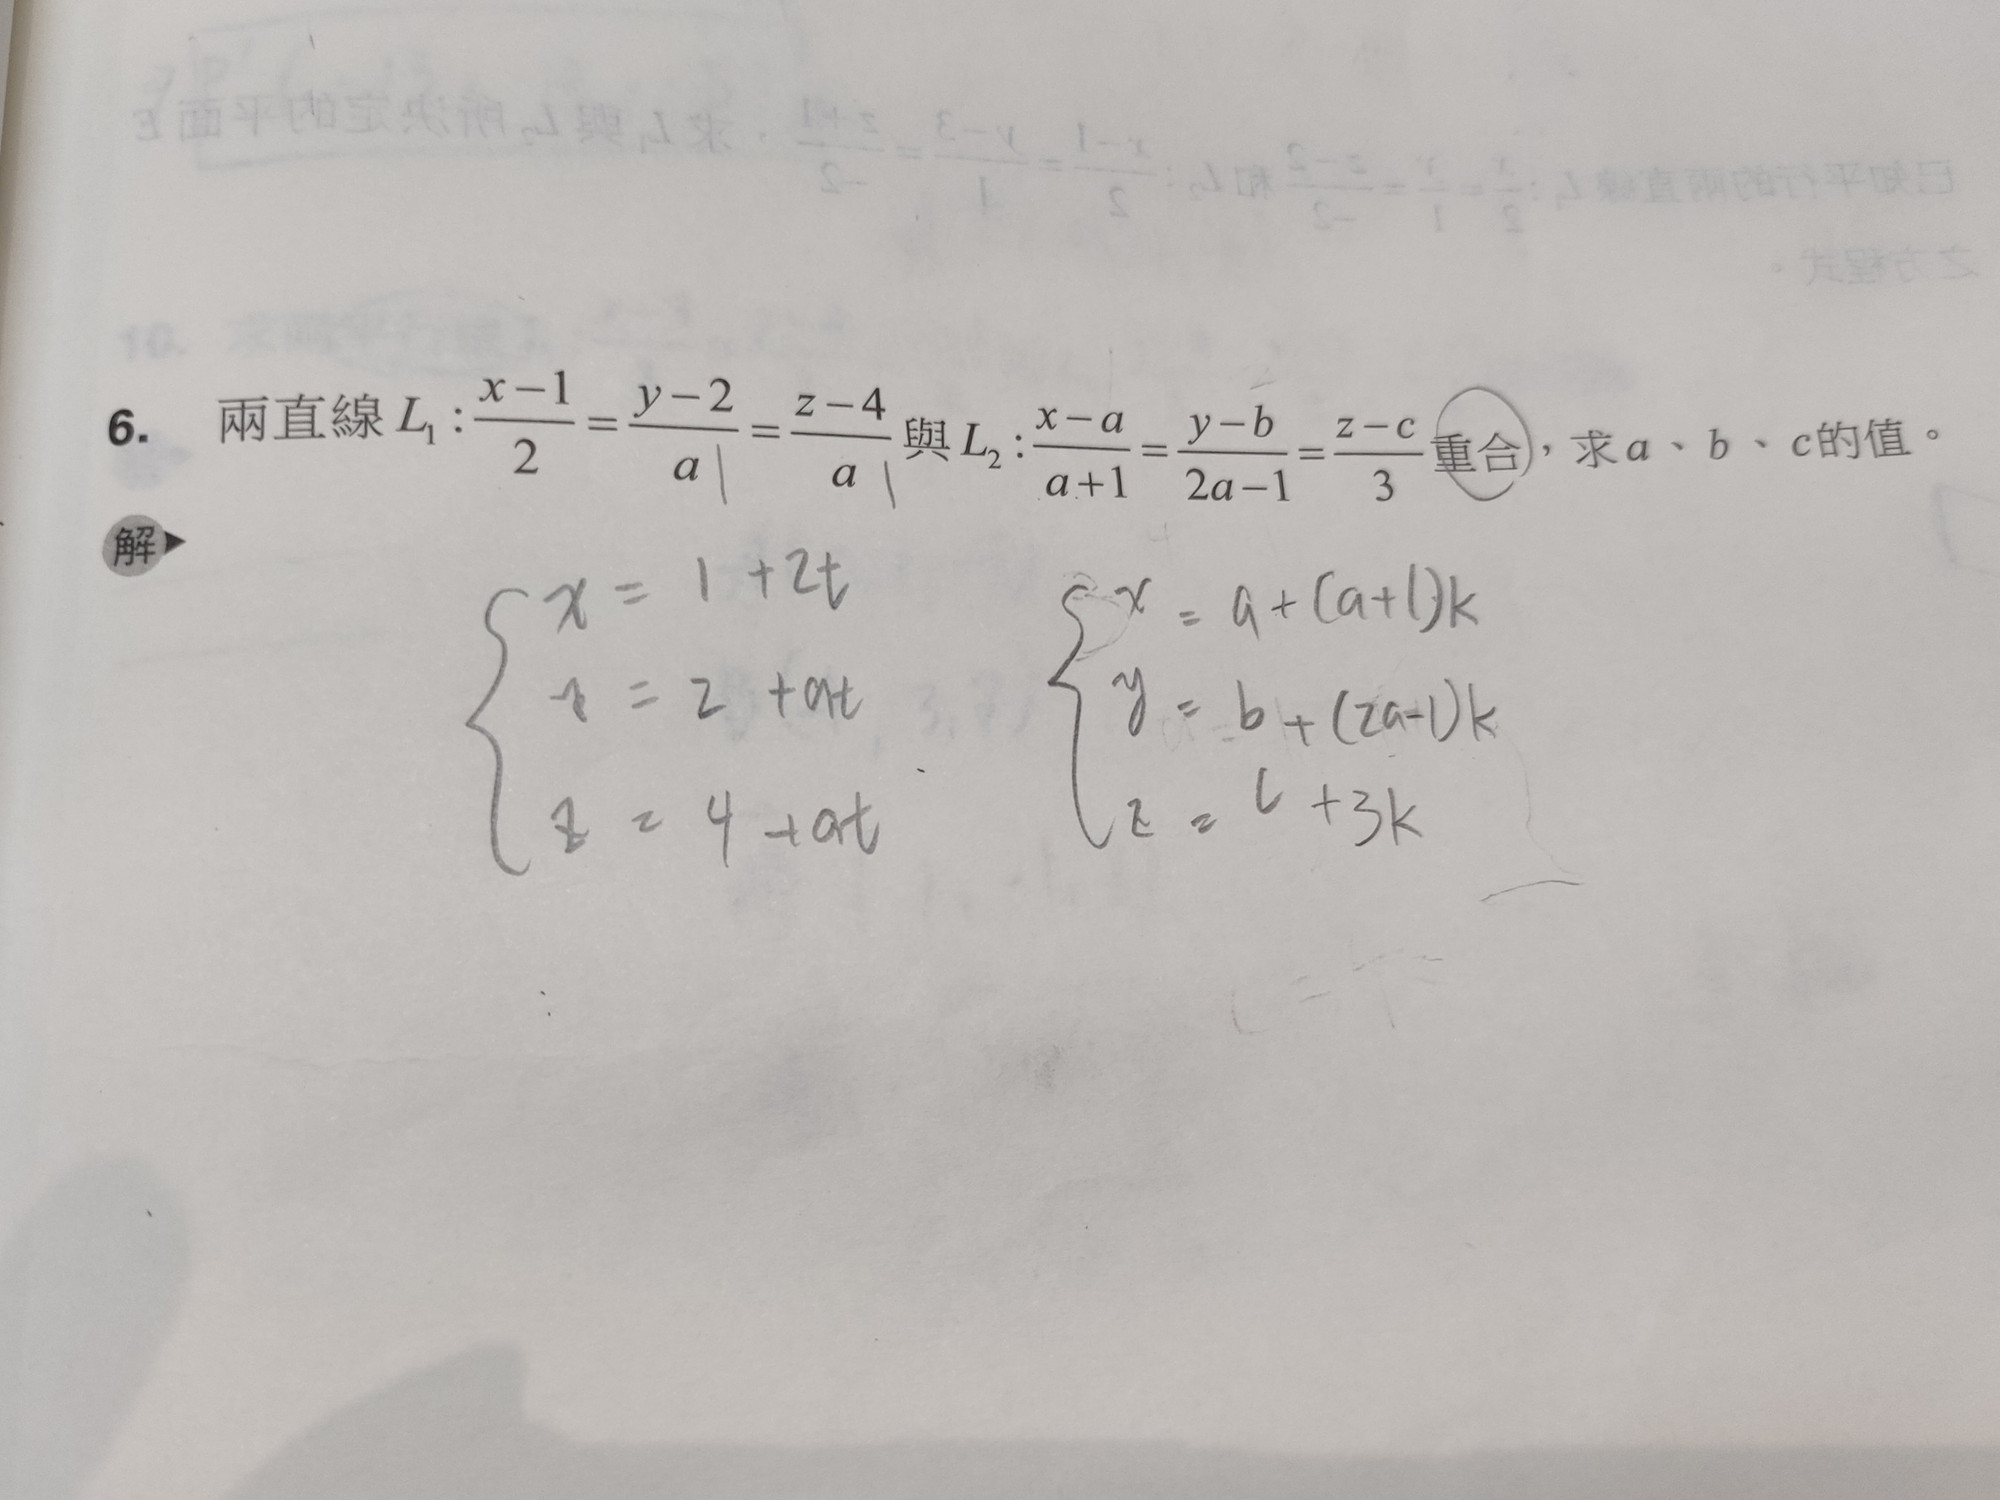 6. 兩直線 L₁ : (x−1)/2 = (y−2)/a = (z−4)/a 與 L₂ : (x−a)/(a+1) = (y−b)/(2a−1) = (z−c)/3 重合，求 a、b、c 的值。
解
x = 1 + 2t
= 2 + at
z = 4 + at
x = a + (a+1)k
y = b + (2a-1)k
z = c + 3k